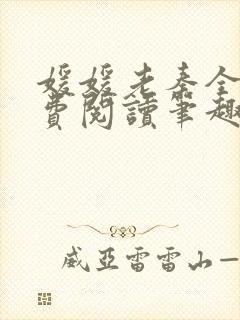 媛媛老秦全
費閱讀筆趣
威亞雷雷山一